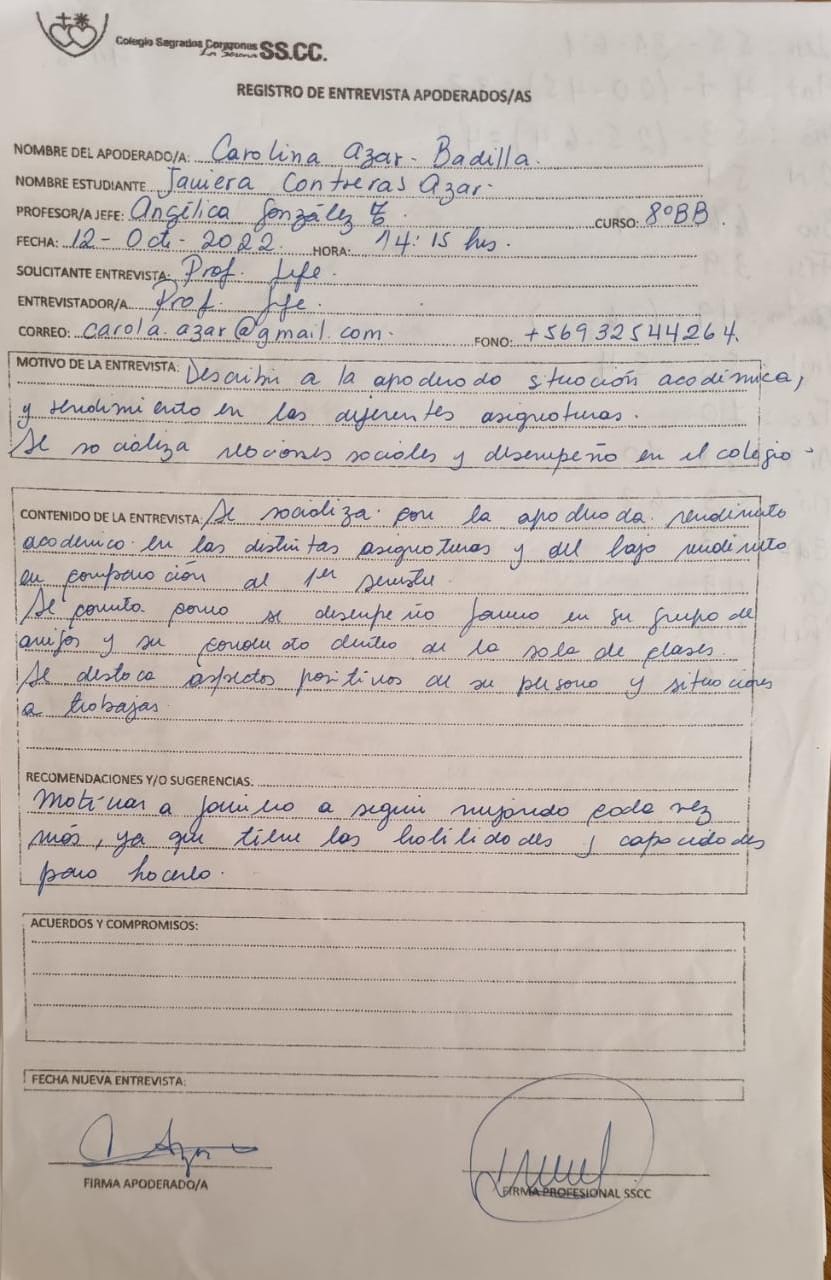 Colegio Sagrados Corazones SS.CC.
La Serena
REGISTRO DE ENTREVISTA APODERADOS/AS
NOMBRE DEL APODERADO/A: Carolina Azar Badilla.
NOMBRE ESTUDIANTE Javiera Contreras Azar.
PROFESOR/A JEFE: Angélica González CURSO: 8ºBB.
FECHA: 12-Oct-2022. HORA: 14:15 hrs.
SOLICITANTE ENTREVISTA: Prof. Jefe.
ENTREVISTADOR/A Prof. Jefe.
CORREO: carola.azar@gmail.com. FONO: +56932544264.
MOTIVO DE LA ENTREVISTA: Describir a la apoderado situación académica,
y rendimiento en las diferentes asignaturas.
Se socializa relaciones sociales y desempeño en el colegio.
CONTENIDO DE LA ENTREVISTA: Se socializa con la apoderada rendimiento
académico en las distintas asignaturas y del bajo rendimiento
en comparación al 1er semestre.
Se comenta como se desempeño Javiera en su grupo de
amigos y su conducta dentro de la sala de clases.
Se destaca aspectos positivos de su persona y situaciones
a trabajar
RECOMENDACIONES Y/O SUGERENCIAS.
Motivar a Javiera a seguir mejorando cada vez
más, ya que tiene las habilidades y capacidades
para hacerlo.
ACUERDOS Y COMPROMISOS:
FECHA NUEVA ENTREVISTA:
Azar
FIRMA APODERADO/A
FIRMA PROFESIONAL SSCC